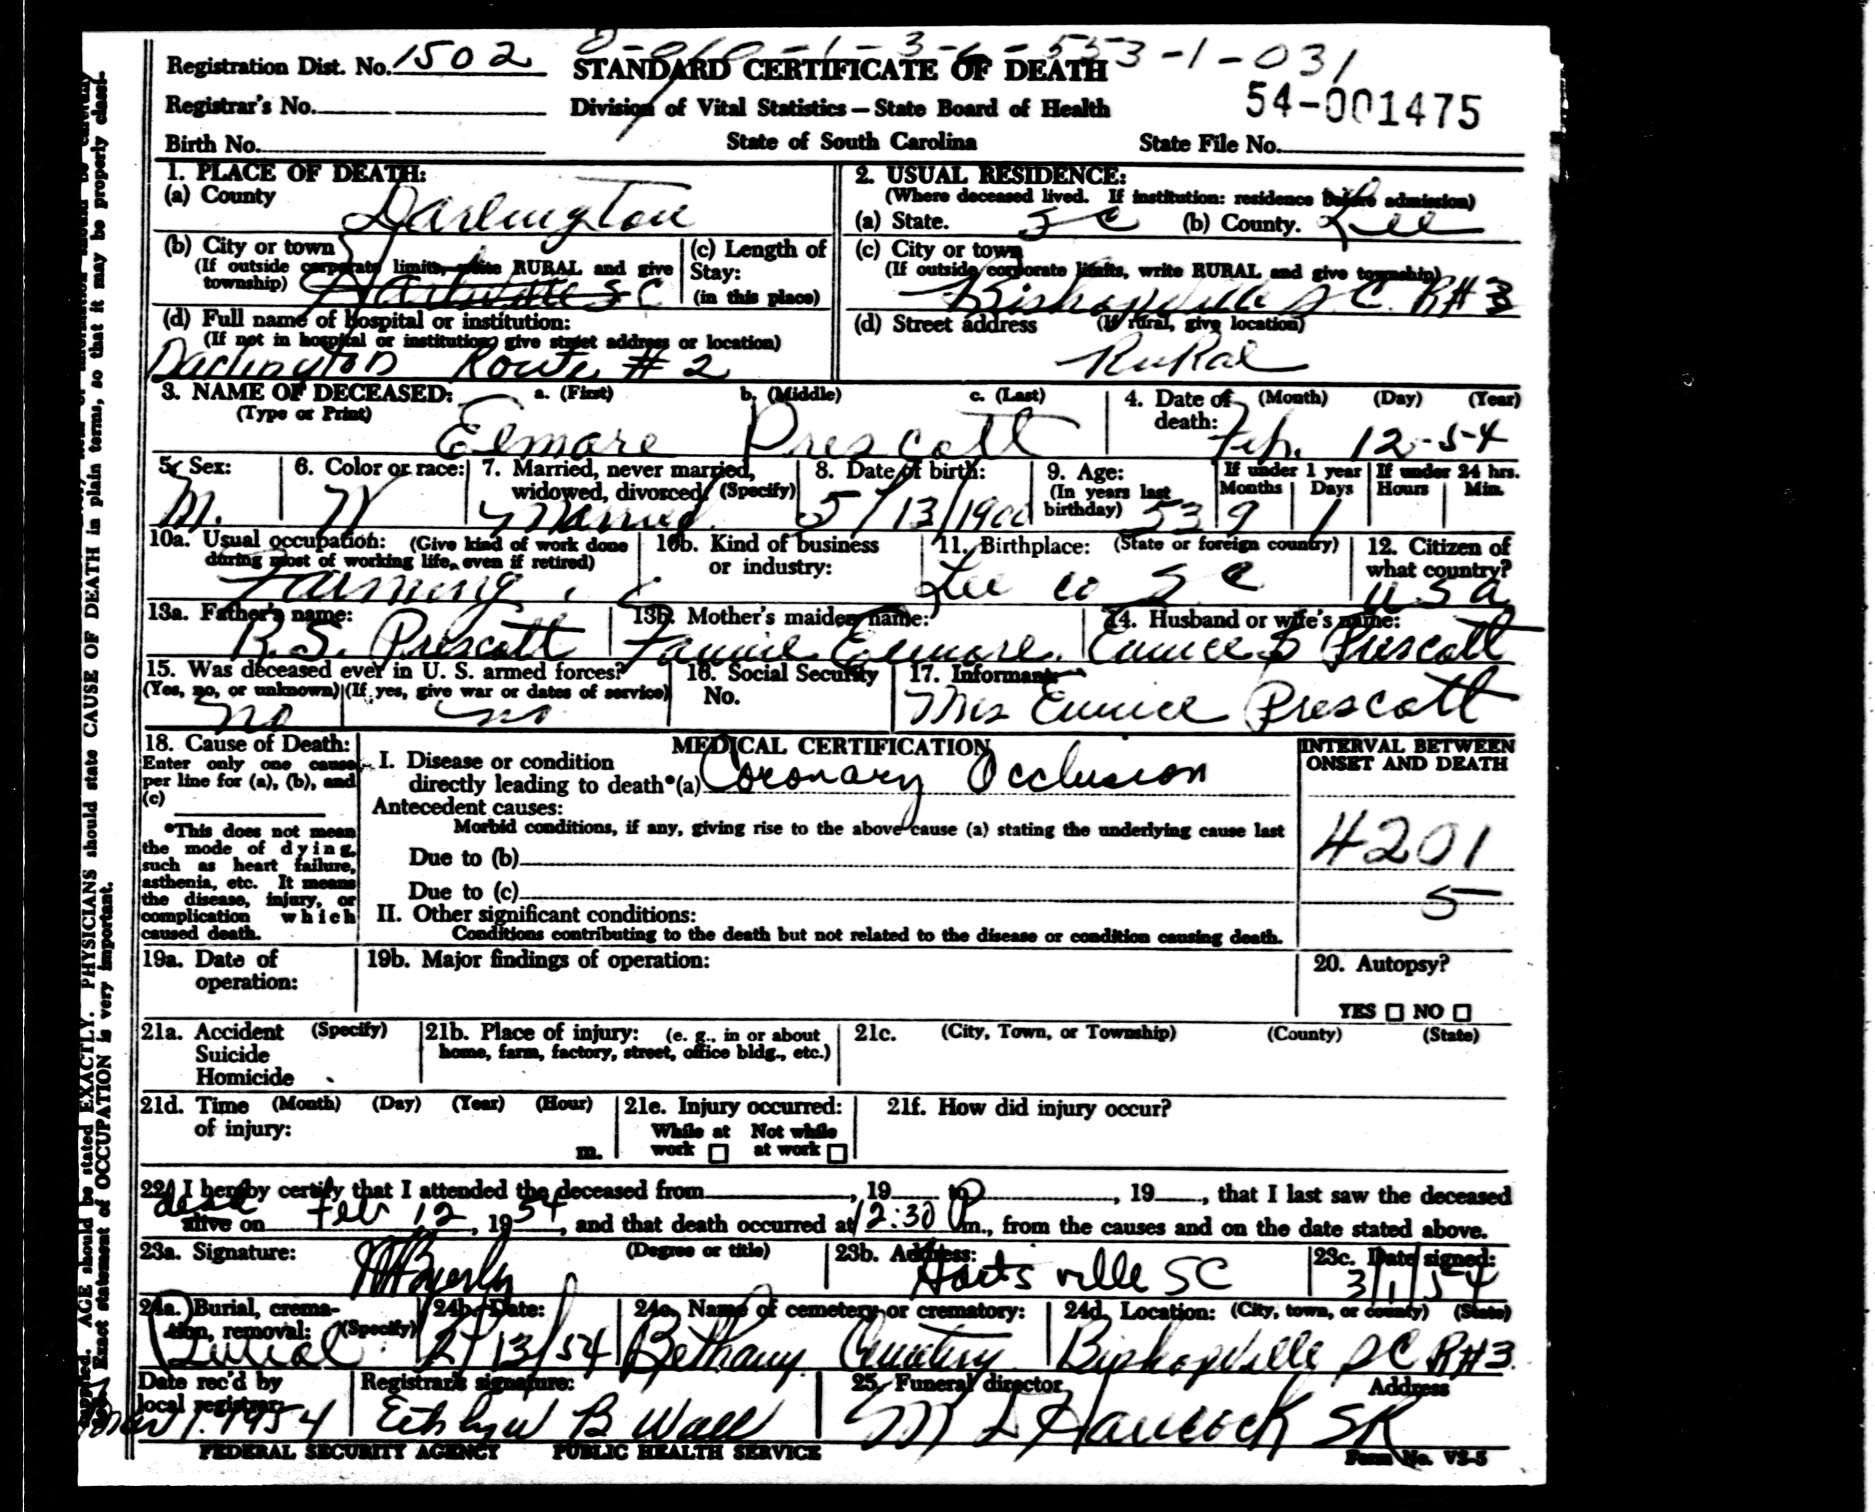 0-060-1-3-6-553-1-031
Registration Dist. No. 1502 STANDARD CERTIFICATE OF DEATH
Registrar's No. Division of Vital Statistics — State Board of Health 54-001475
Birth No. State of South Carolina State File No.
1. PLACE OF DEATH: 2. USUAL RESIDENCE:
(a) County Darlington (Where deceased lived. If institution: residence before admission)
(a) State. S C (b) County. Lee
(b) City or town (c) Length of Stay: (c) City or town
(If outside corporate limits, write RURAL and give township) Hartsville S C (in this place) (If outside corporate limits, write RURAL and give township)
Bishopville S. C. R#3
(d) Full name of hospital or institution: (d) Street address (If rural, give location)
(If not in hospital or institution, give street address or location)
Darlington Route # 2 Rural
3. NAME OF DECEASED: a. (First) b. (Middle) c. (Last) 4. Date of death: (Month) (Day) (Year)
(Type or Print) Elmore Prescott Feb. 12-54
5. Sex: 6. Color or race: 7. Married, never married, widowed, divorced (Specify) 8. Date of birth: 9. Age: (In years last birthday) If under 1 year Months Days If under 24 hrs. Hours Min.
M. W Married 5/13/1900 53 9 1
10a. Usual occupation: (Give kind of work done during most of working life, even if retired) 10b. Kind of business or industry: 11. Birthplace: (State or foreign country) 12. Citizen of what country?
Farming Lee co S C U S A
13a. Father's name: 13b. Mother's maiden name: 14. Husband or wife's name:
R. S. Prescott Fannie Elmore Eunice B Prescott
15. Was deceased ever in U. S. armed forces? 16. Social Security No. 17. Informant:
(Yes, no, or unknown) (If yes, give war or dates of service)
no no Mrs Eunice Prescott
18. Cause of Death: MEDICAL CERTIFICATION INTERVAL BETWEEN ONSET AND DEATH
Enter only one cause per line for (a), (b), and (c)
I. Disease or condition directly leading to death*(a) Coronary Occlusion
Antecedent causes:
Morbid conditions, if any, giving rise to the above cause (a) stating the underlying cause last
*This does not mean the mode of dying, such as heart failure, asthenia, etc. It means the disease, injury, or complication which caused death.
Due to (b) 4201
Due to (c) 5
II. Other significant conditions:
Conditions contributing to the death but not related to the disease or condition causing death.
19a. Date of operation: 19b. Major findings of operation: 20. Autopsy?
YES NO
21a. Accident Suicide Homicide (Specify) 21b. Place of injury: (e. g., in or about home, farm, factory, street, office bldg., etc.) 21c. (City, Town, or Township) (County) (State)
21d. Time of injury: (Month) (Day) (Year) (Hour) m. 21e. Injury occurred: While at work Not while at work 21f. How did injury occur?
22. I hereby certify that I attended the deceased from , 19 to , 19 , that I last saw the deceased
dead alive on Feb 12, 1954, and that death occurred at 12:30 P m., from the causes and on the date stated above.
23a. Signature: (Degree or title) 23b. Address: Hartsville SC 23c. Date signed: 3/1/54
24a. Burial, cremation, removal: (Specify) 24b. Date: 24c. Name of cemetery or crematory: 24d. Location: (City, town, or county) (State)
Burial 2/13/54 Bethany Cemetery Bishopville S C R#3
Date rec'd by local registrar: Registrar's signature: 25. Funeral director Address
Mar 1. 1954 B Wall M L Hancock SR
FEDERAL SECURITY AGENCY PUBLIC HEALTH SERVICE Form No. VS-5
AGE should be stated EXACTLY. PHYSICIANS should state CAUSE OF DEATH in plain terms, so that it may be properly classi-
Exact statement of OCCUPATION is very important.